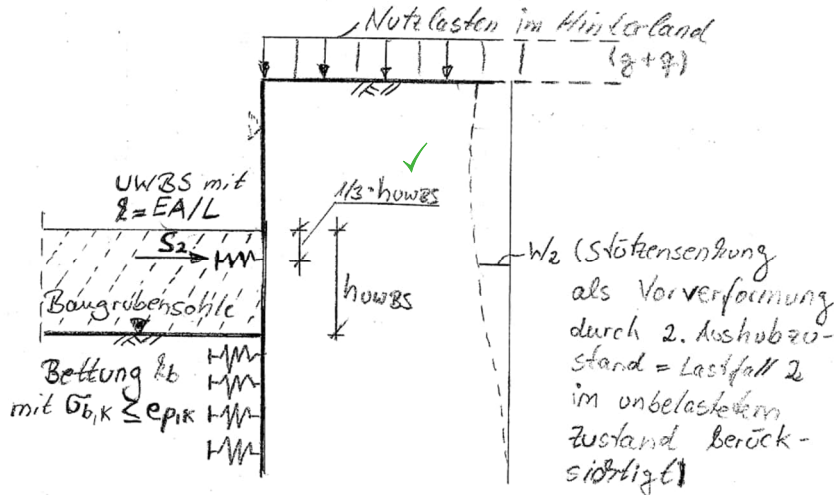 Nutzlasten im Hinterland
(g+q)
UWBS mit
k=EA/L
1/3·hUWBS
S2
hUWBS
Baugrubensohle
Bettung kb
mit σb,k ≤ ep,k
W2 (Stützensenkung
als Vorverformung
durch 2. Aushubzu-
stand = Lastfall 2
im unbelastetem
Zustand berück-
sichtigt)